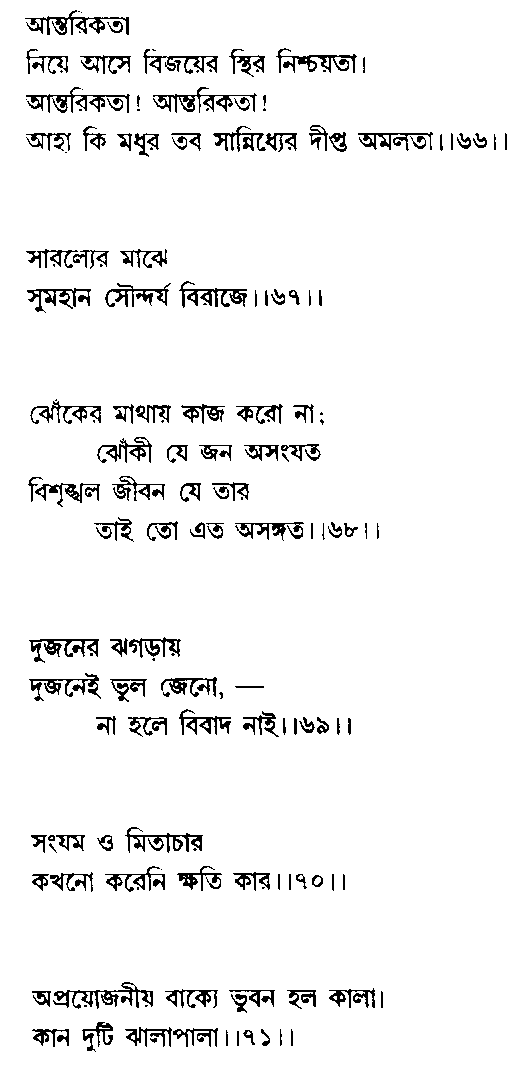 আন্তরিকতা
নিয়ে আসে বিজয়ের স্থির নিশ্চয়তা।
আন্তরিকতা! আন্তরিকতা!
আহা কি মধুর তব সান্নিধ্যের দীপ্ত অমলতা।।৬৬।।
সারল্যের মাঝে
সুমহান সৌন্দর্য বিরাজে।।৬৭।।
ঝোঁকের মাথায় কাজ করো না;
ঝোঁকী যে জন অসংযত
বিশৃঙ্খল জীবন যে তার
তাই তো এত অসঙ্গত।।৬৮।।
দুজনের ঝগড়ায়
দুজনেই ভুল জেনো, —
না হলে বিবাদ নাই।।৬৯।।
সংযম ও মিতাচার
কখনো করেনি ক্ষতি কার।।৭০।।
অপ্রয়োজনীয় বাক্যে ভুবন হল কালা।
কান দুটি ঝালাপালা।।৭১।।